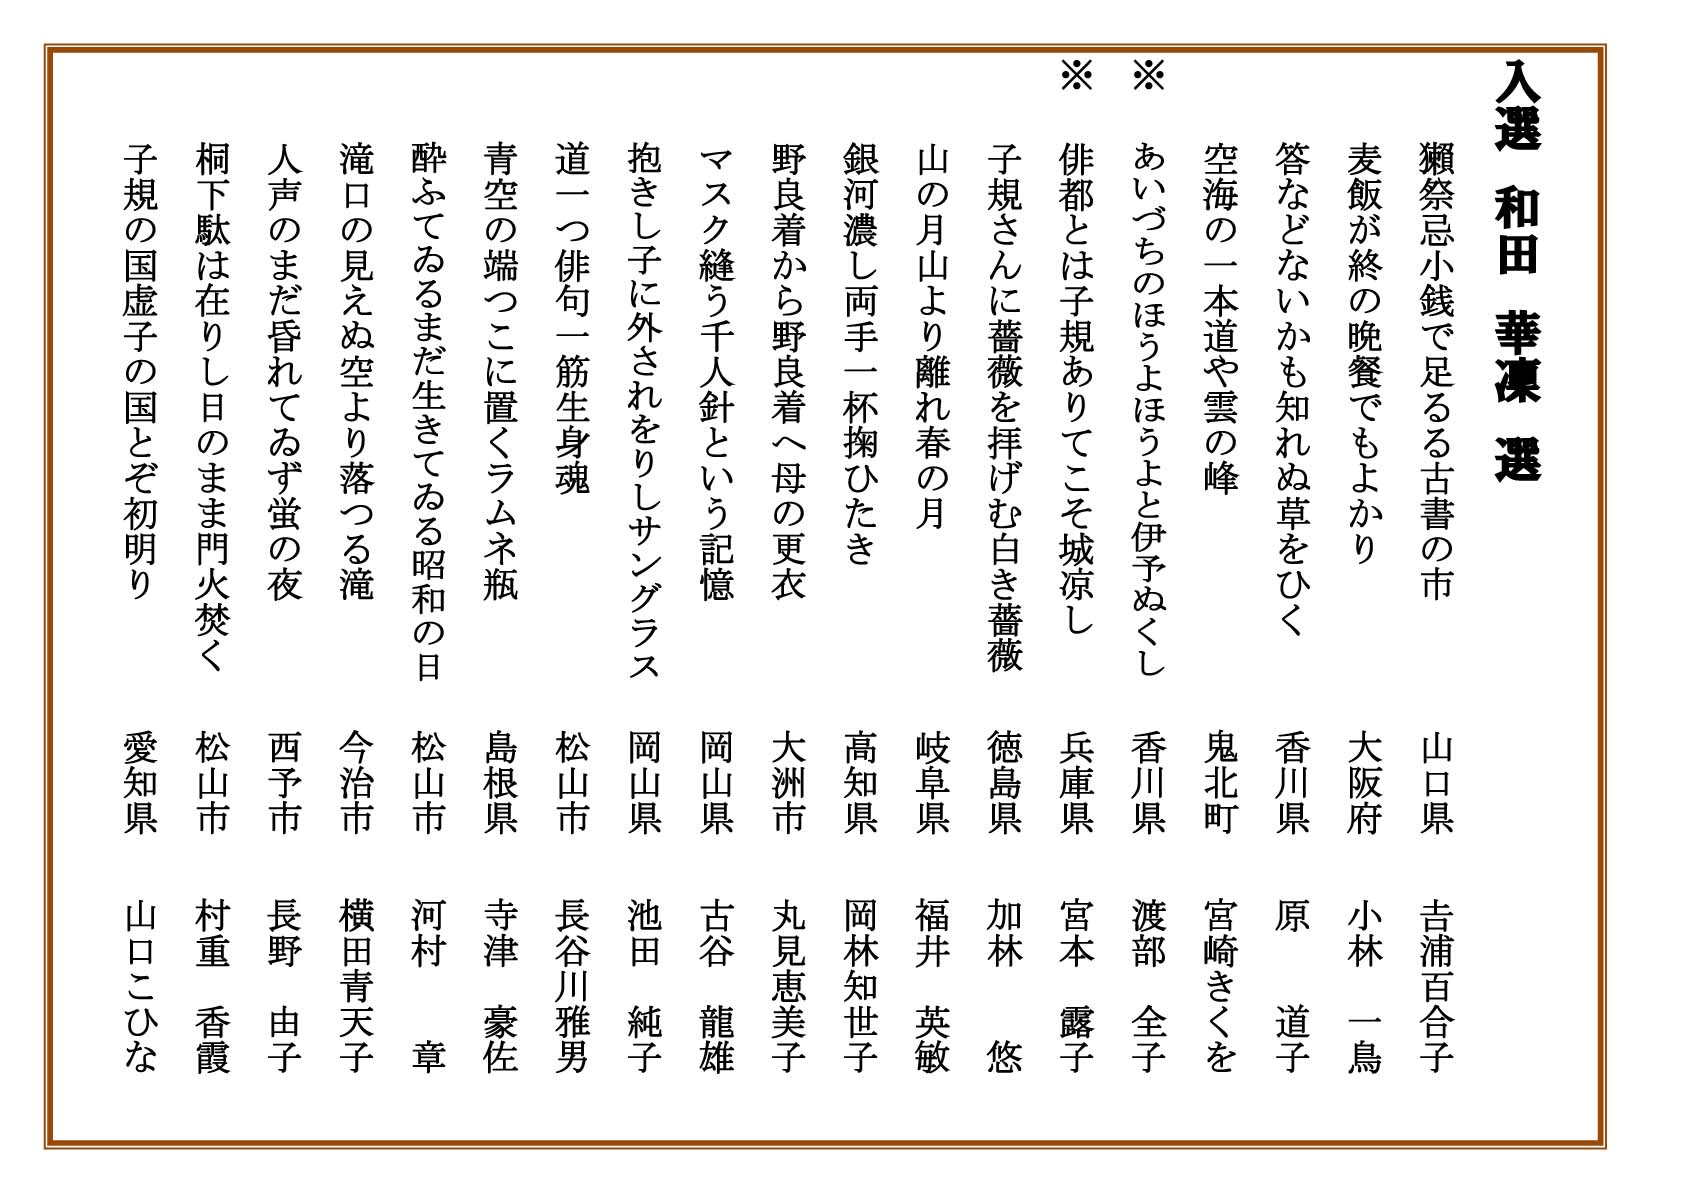 入選　和田　華凜　選
獺祭忌小銭で足るる古書の市　山口県　吉浦百合子
麦飯が終の晩餐でもよかり　大阪府　小林　一鳥
答などないかも知れぬ草をひく　香川県　原　道子
空海の一本道や雲の峰　鬼北町　宮崎きくを
※　あいづちのほうよほうよと伊予ぬくし　香川県　渡部　全子
※　俳都とは子規ありてこそ城凉し　兵庫県　宮本　露子
子規さんに薔薇を拝げむ白き薔薇　徳島県　加林　悠
山の月山より離れ春の月　岐阜県　福井　英敏
銀河濃し両手一杯掬ひたき　高知県　岡林知世子
野良着から野良着へ母の更衣　大洲市　丸見恵美子
マスク縫う千人針という記憶　岡山県　古谷　龍雄
抱きし子に外されをりしサングラス　岡山県　池田　純子
道一つ俳句一筋生身魂　松山市　長谷川雅男
青空の端つこに置くラムネ瓶　島根県　寺津　豪佐
酔ふてゐるまだ生きてゐる昭和の日　松山市　河村　章
滝口の見えぬ空より落つる滝　今治市　横田青天子
人声のまだ昏れてゐず蛍の夜　西予市　長野　由子
桐下駄は在りし日のまま門火焚く　松山市　村重　香霞
子規の国虚子の国とぞ初明り　愛知県　山口こひな